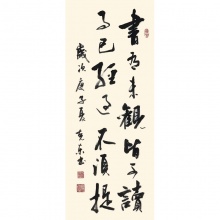 書有未觀皆可讀
事已經過不須提
歲次庚子夏